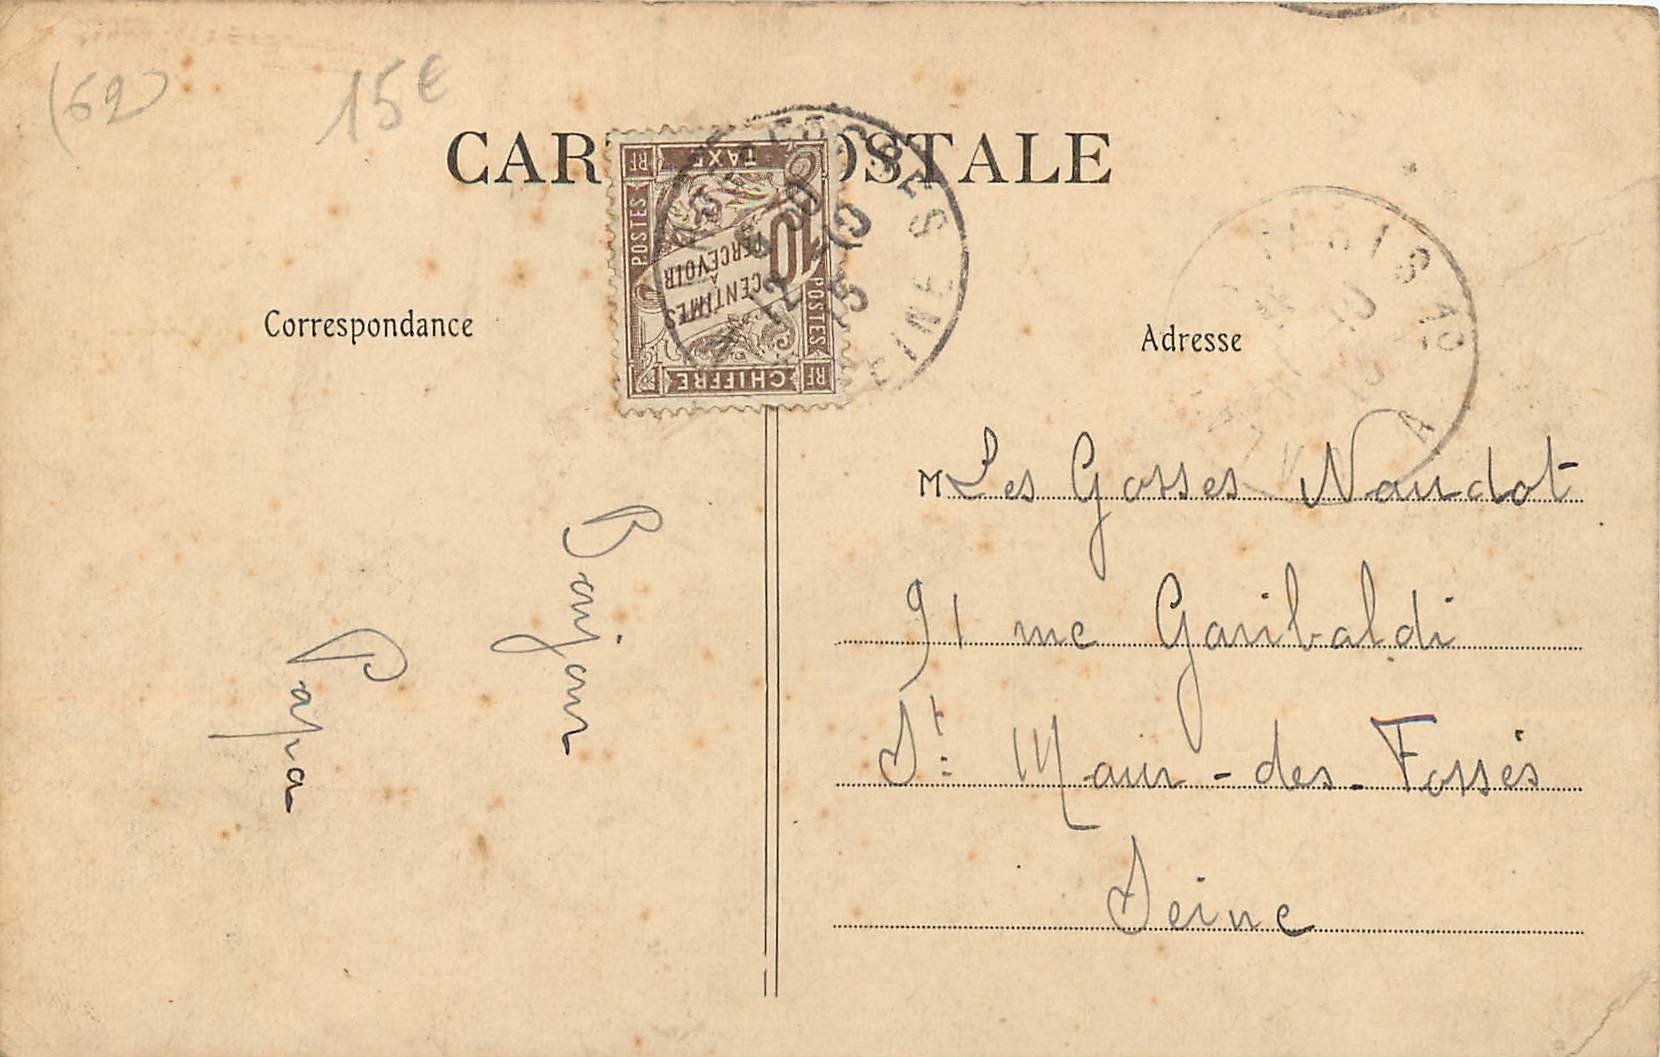 (62)
15€
CARTE POSTALE
TAXE
RF
POSTES
10
CENTIMES
À
PERCEVOIR
POSTES
CHIFFRE
RF
SEINE
PARIS 12
Correspondance
Adresse
Bonjour
Papa
M Les Gosses Naudot
91 rue Garibaldi
St. Maur-des-Fossés
Seine